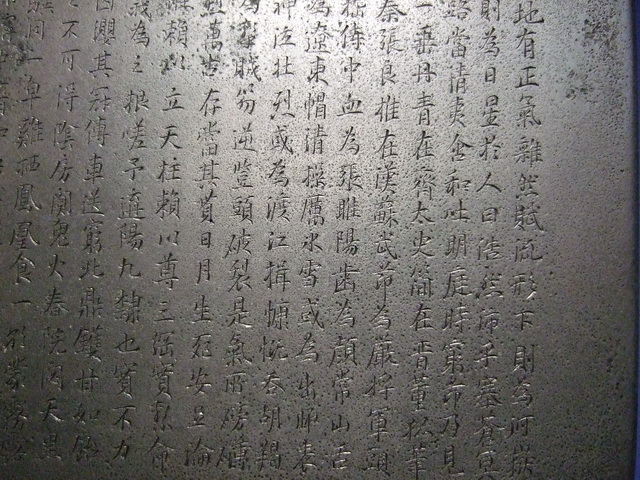 地有正氣雜然賦流形下則為河嶽
則為日星於人曰浩然沛乎塞蒼冥
路當清夷含和吐明庭時窮節乃見
一垂丹青在齊太史簡在晉董狐筆
秦張良椎在漢蘇武節為嚴將軍頭
嵇侍中血為張睢陽齒為顏常山舌
為遼東帽清操厲冰雪或為出師表
神泣壯烈或為渡江楫慷慨吞胡羯
為擊賊笏逆豎頭破裂是氣所磅礴
烈萬古存當其貫日月生死安足論
維賴以立天柱賴以尊三綱實繫命
義為之根嗟予遘陽九隸也實不力
囚纓其冠傳車送窮北鼎鑊甘如飴
之不可得陰房闃鬼火春院閟天黑
驥同一皁雞栖鳳凰食一朝蒙霧露